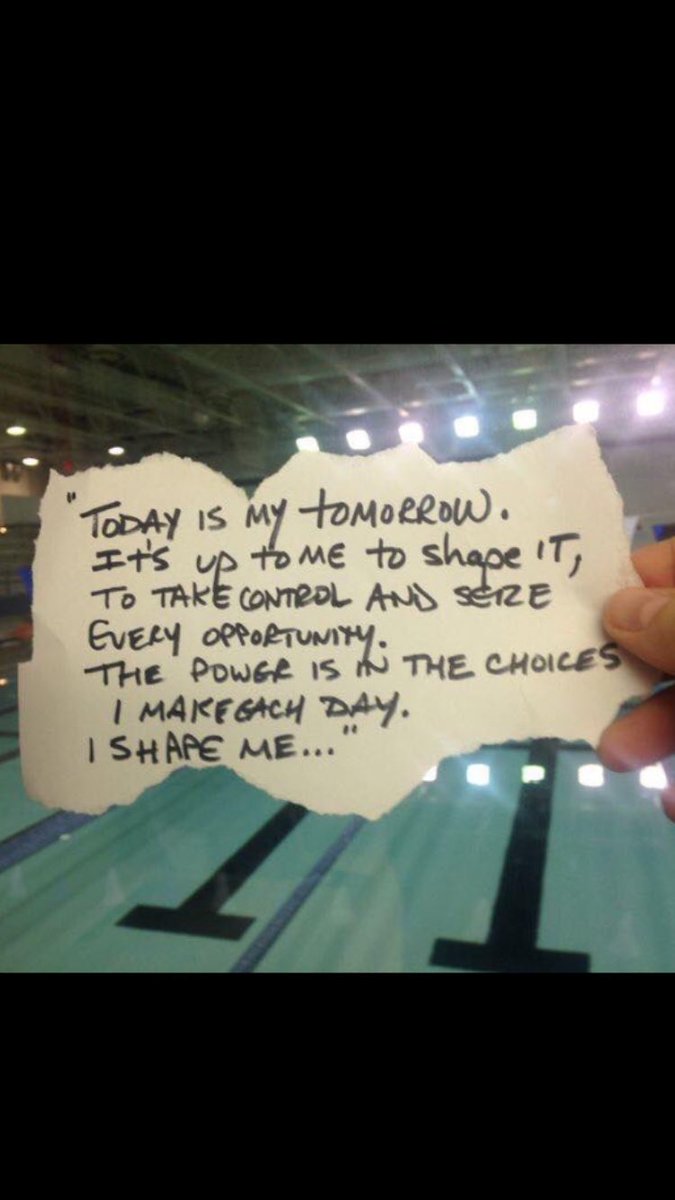 "TODAY IS MY TOMORROW.
IT'S UP TO ME TO shape IT,
TO TAKE CONTROL AND SEIZE
EVERY OPPORTUNITY.
THE POWER IS IN THE CHOICES
I MAKE EACH DAY.
I SHAPE ME..."